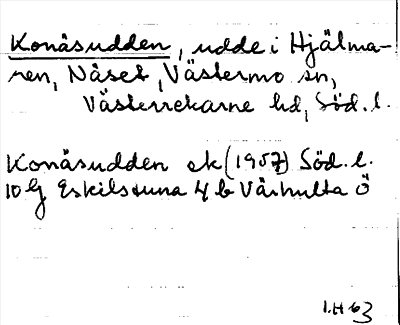 Konäsudden, udde i Hjälma-
ren, Näset, Västermo sn,
Västerrekarne hd, Söd. l.
Konäsudden ek (1957) Söd. l.
10 G Eskilstuna 4 b Värhulta Ö
I.H 63